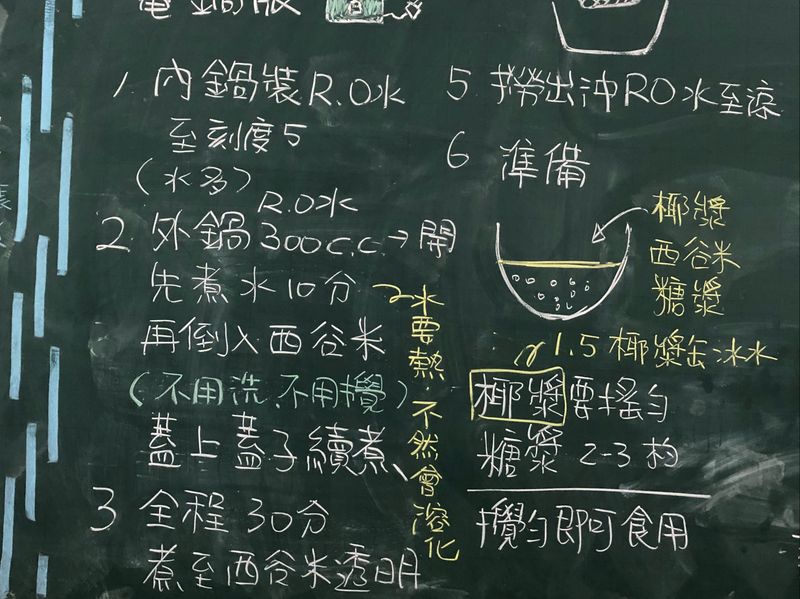 電鍋版
1. 內鍋裝R.O水
至刻度5
(水多)
R.O水
2. 外鍋300c.c.→開
先煮水10分
再倒入西谷米
(不用洗、不用攪)
蓋上蓋子續煮、
水要熱不然會溶化
3. 全程30分
煮至西谷米透明
5 撈出沖RO水至涼
6 準備
椰漿
西谷米
糖漿
1.5椰漿缶冰水
椰漿要搖勻
糖漿 2-3 杓
攪勻即可食用